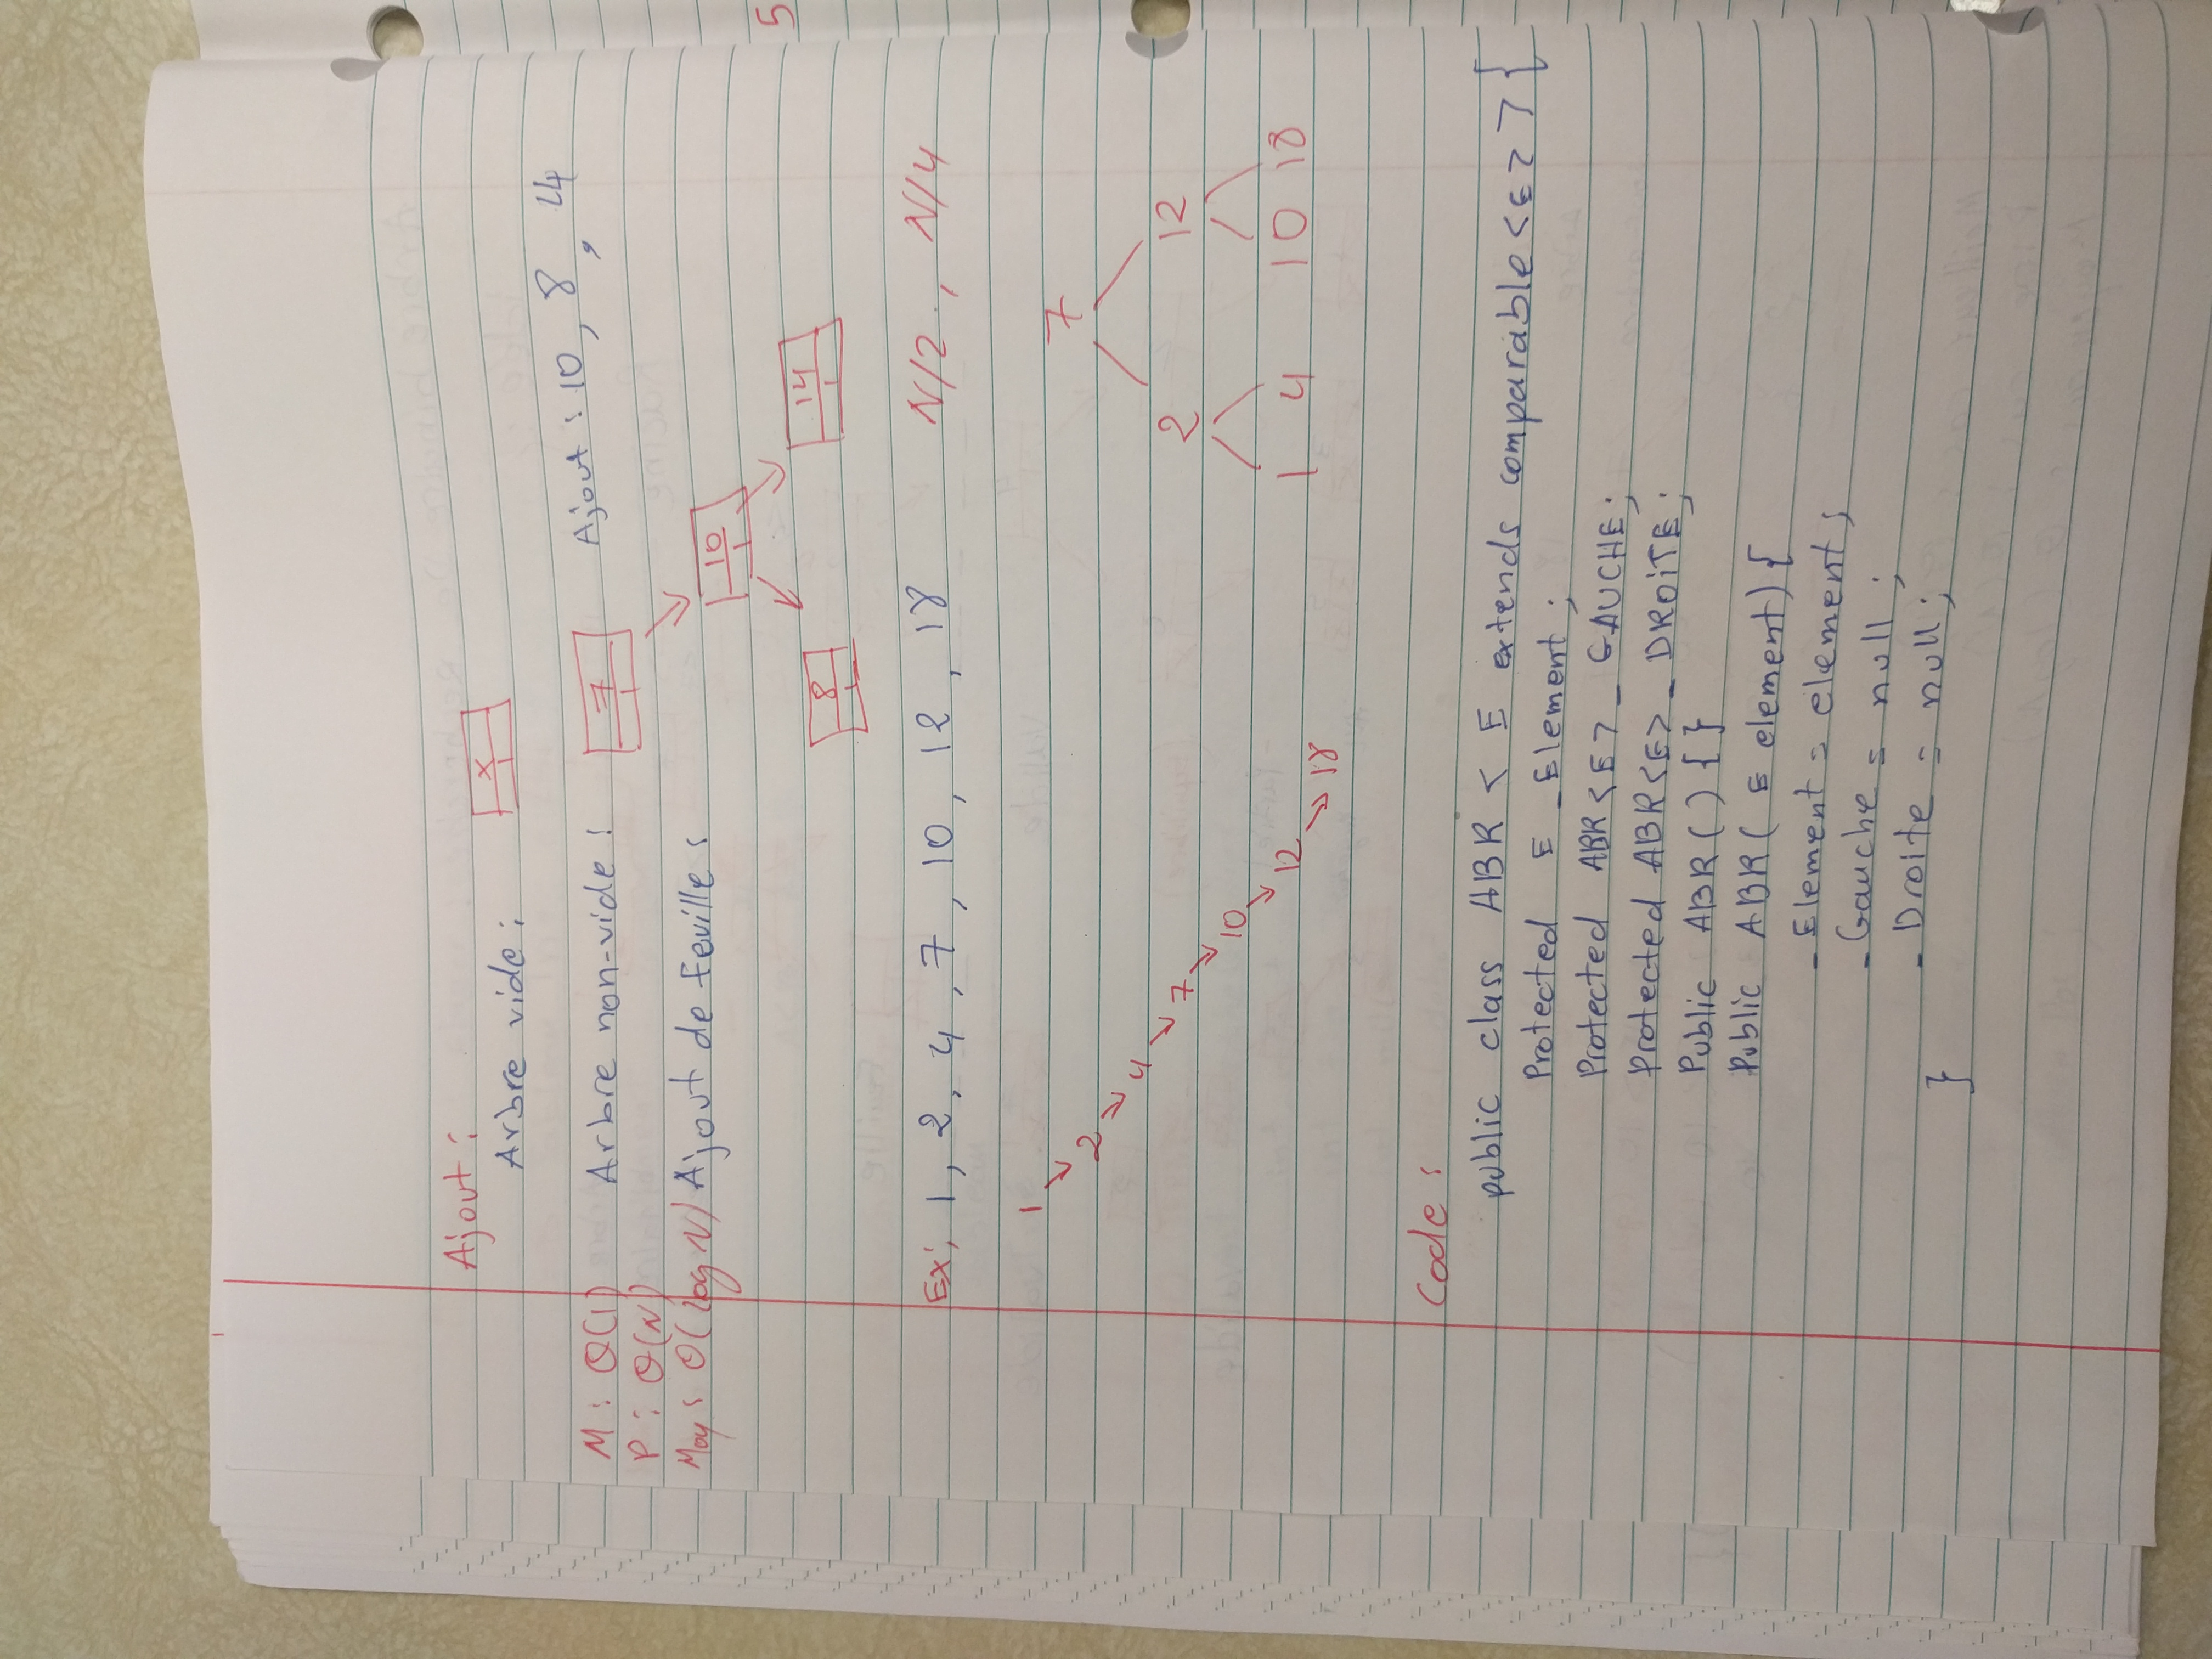 5
Ajout :
Arbre vide : x
M : O(1) Arbre non-vide : 7 Ajout : 10, 8, 14
P : O(N)
Moy : O(log N) Ajout de feuille : 10
8 14
Ex: 1, 2, 4, 7, 10, 12, 18 N/2, N/4
1 → 2 → 4 → 7 → 10 → 12 → 18
7
2 12
1 4 10 18
Code :
public class ABR < E extends comparable <E> > {
Protected E _Element ;
Protected ABR <E> _ GAUCHE ;
Protected ABR <E> _ DROiTE ;
Public ABR ( ) { }
Public ABR ( E element) {
_ Element = element ;
_ Gauche = null ;
_ Droite = null ;
}